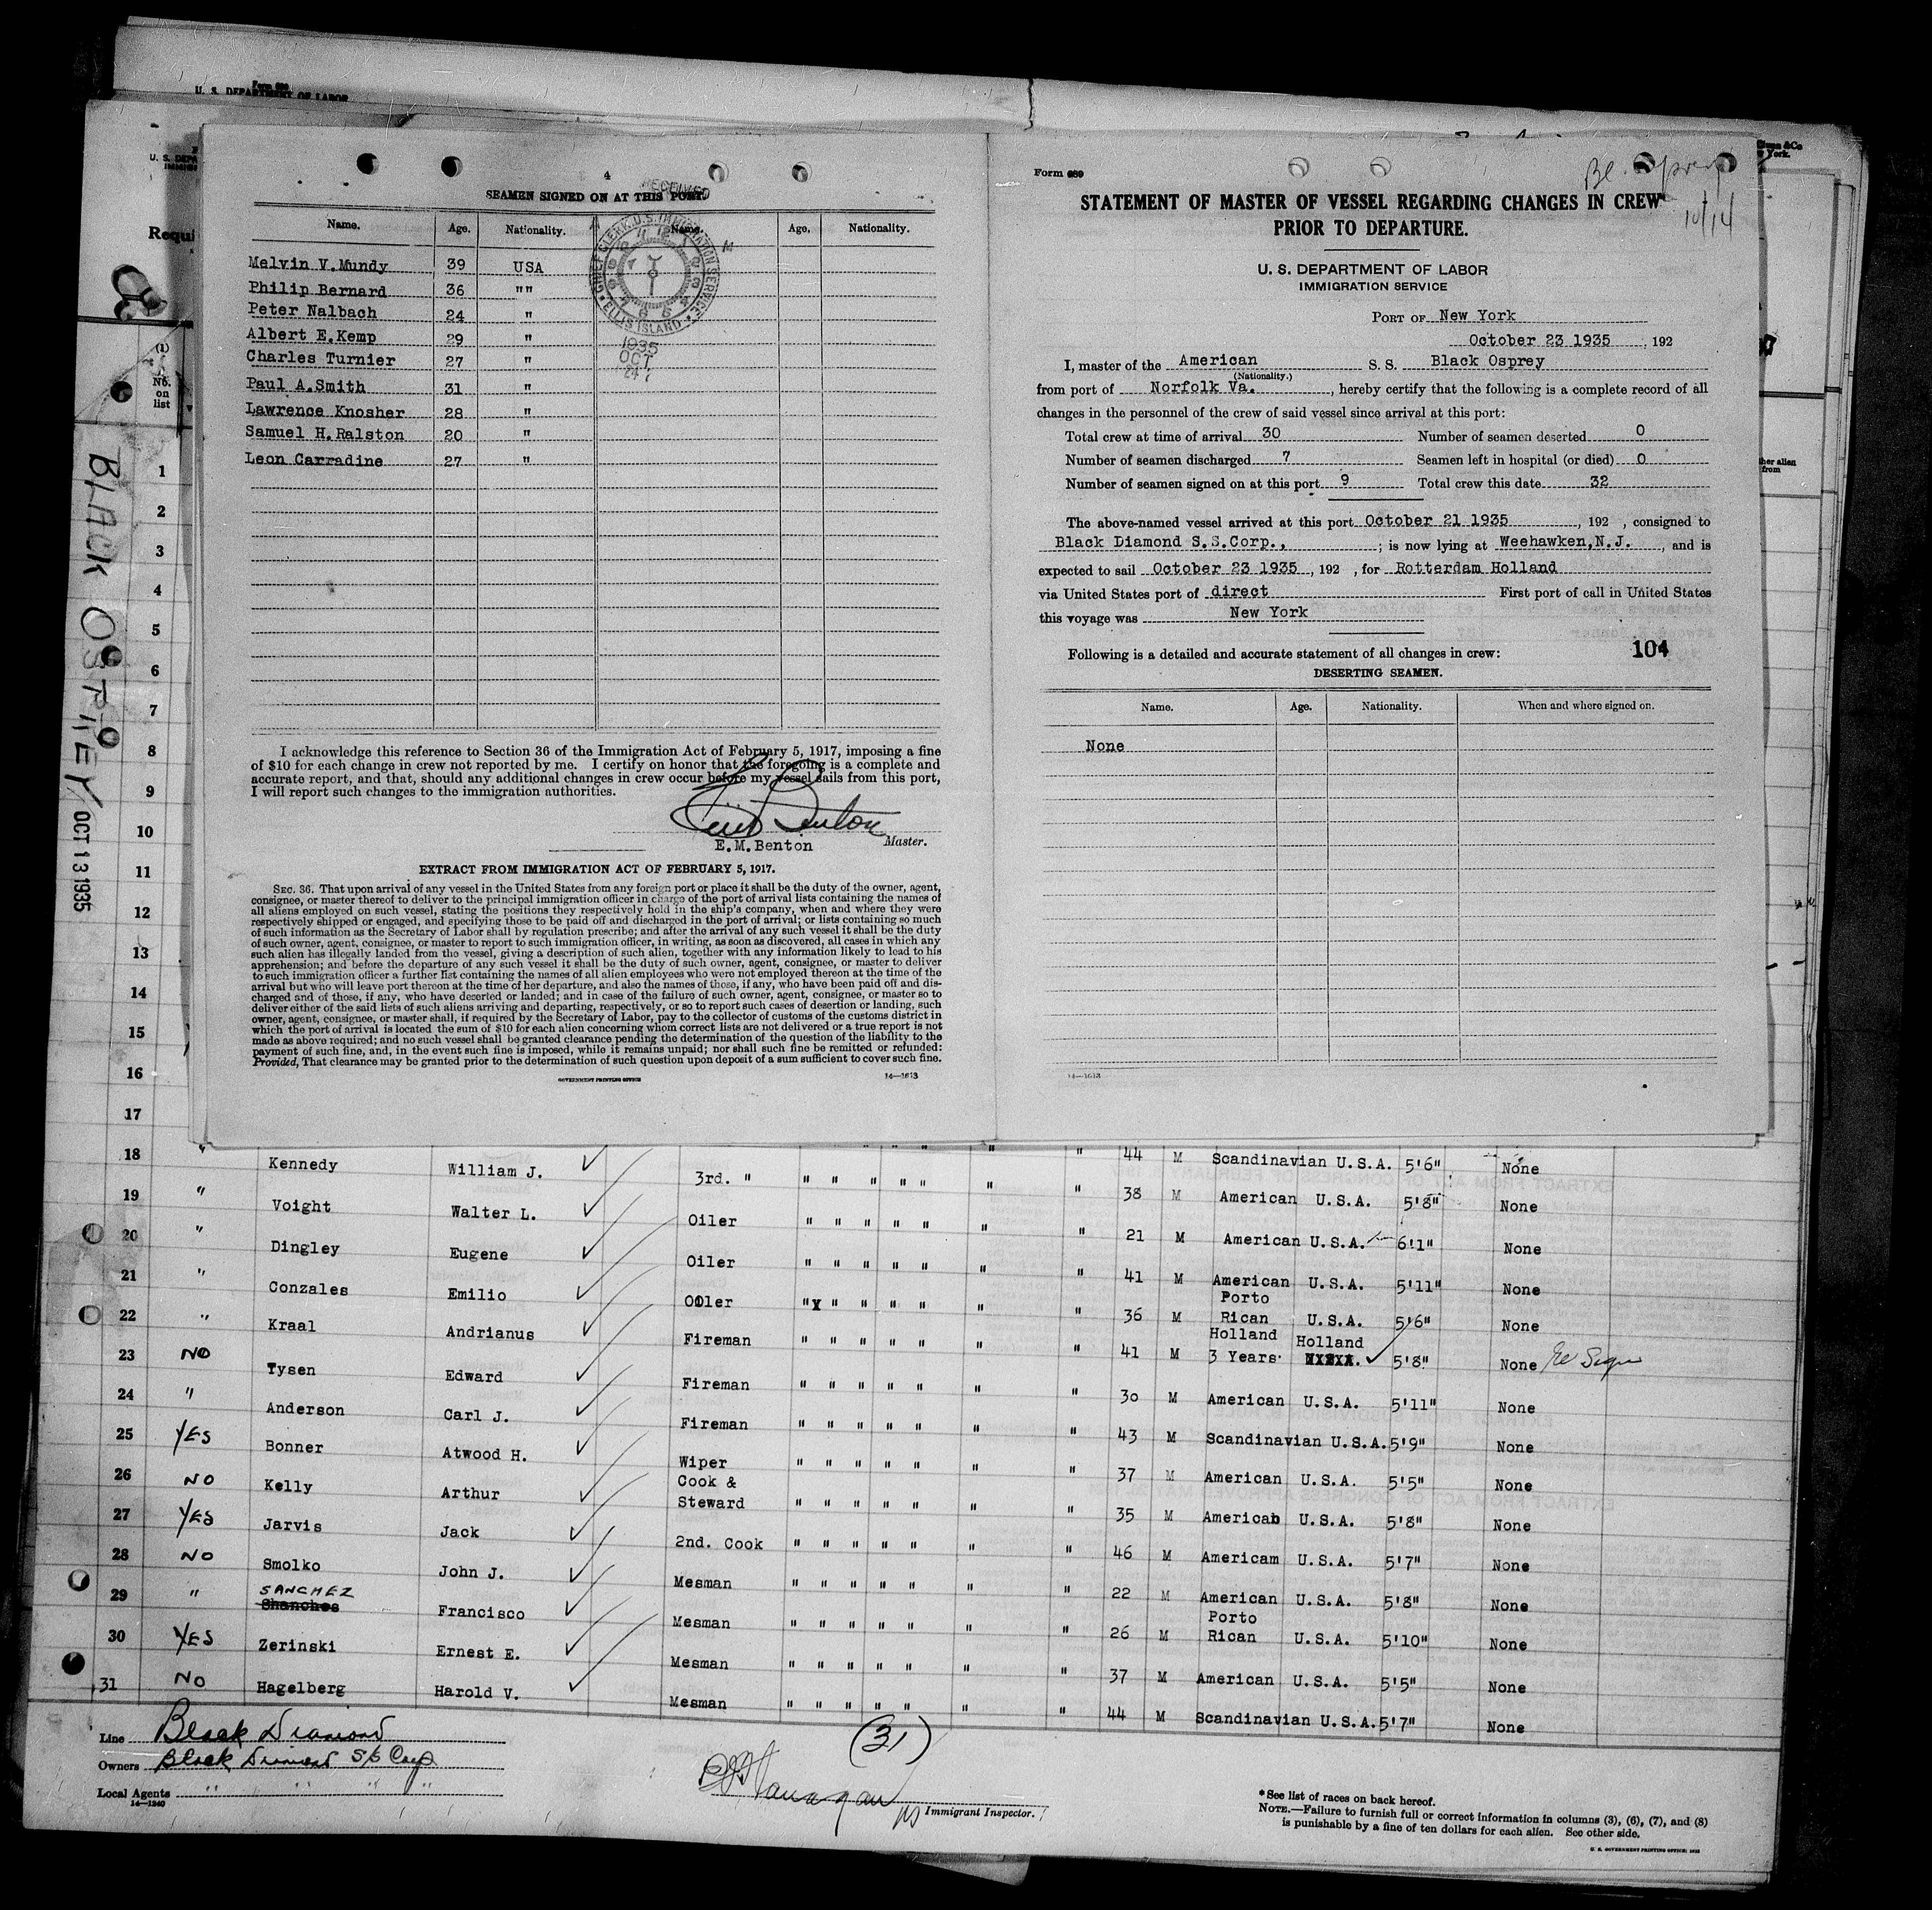 Form 689
U. S. DEPARTMENT OF LABOR
U. S. DEPA
IMMIG
Requi
(1)
No.
on
list
BLACK OSPREY/ OCT 13 1935
4
RECEIVED
SEAMEN SIGNED ON AT THIS PORT.
Name. Age. Nationality. Name. Age. Nationality.
Melvin V.Mundy 39 USA
Philip Bernard 36 ""
Peter Nalbach 24 "
Albert E.Kemp 29 "
Charles Turnier 27 "
Paul A.Smith 31 "
Lawrence Knosher 28 "
Samuel H.Ralston 20 "
Leon Carradine 27 "
CHIEF CLERK, U.S. IMMIGRATION SERVICE
ELLIS ISLAND
1935
OCT
24
I acknowledge this reference to Section 36 of the Immigration Act of February 5, 1917, imposing a fine
of $10 for each change in crew not reported by me. I certify on honor that the foregoing is a complete and
accurate report, and that, should any additional changes in crew occur before my vessel sails from this port,
I will report such changes to the immigration authorities.
E.M.Benton Master.
EXTRACT FROM IMMIGRATION ACT OF FEBRUARY 5, 1917.
SEC. 36. That upon arrival of any vessel in the United States from any foreign port or place it shall be the duty of the owner, agent,
consignee, or master thereof to deliver to the principal immigration officer in charge of the port of arrival lists containing the names of
all aliens employed on such vessel, stating the positions they respectively hold in the ship's company, when and where they were
respectively shipped or engaged, and specifying those to be paid off and discharged in the port of arrival; or lists containing so much
of such information as the Secretary of Labor shall by regulation prescribe; and after the arrival of any such vessel it shall be the duty
of such owner, agent, consignee, or master to report to such immigration officer, in writing, as soon as discovered, all cases in which any
such alien has illegally landed from the vessel, giving a description of such alien, together with any information likely to lead to his
apprehension; and before the departure of any such vessel it shall be the duty of such owner, agent, consignee, or master to deliver
to such immigration officer a further list containing the names of all alien employees who were not employed thereon at the time of the
arrival but who will leave port thereon at the time of her departure, and also the names of those, if any, who have been paid off and dis-
charged and of those, if any, who have deserted or landed; and in case of the failure of such owner, agent, consignee, or master so to
deliver either of the said lists of such aliens arriving and departing, respectively, or so to report such cases of desertion or landing, such
owner, agent, consignee, or master shall, if required by the Secretary of Labor, pay to the collector of customs of the customs district in
which the port of arrival is located the sum of $10 for each alien concerning whom correct lists are not delivered or a true report is not
made as above required; and no such vessel shall be granted clearance pending the determination of the question of the liability to the
payment of such fine, and, in the event such fine is imposed, while it remains unpaid; nor shall such fine be remitted or refunded:
Provided, That clearance may be granted prior to the determination of such question upon deposit of a sum sufficient to cover such fine.
GOVERNMENT PRINTING OFFICE 14—1613
Form 689
Bl. Osprey
10/14
STATEMENT OF MASTER OF VESSEL REGARDING CHANGES IN CREW
PRIOR TO DEPARTURE.
U. S. DEPARTMENT OF LABOR
IMMIGRATION SERVICE
PORT OF New York
October 23 1935, 192
I, master of the American S. S. Black Osprey
(Nationality.)
from port of Norfolk Va., hereby certify that the following is a complete record of all
changes in the personnel of the crew of said vessel since arrival at this port:
Total crew at time of arrival 30 Number of seamen deserted 0
Number of seamen discharged 7 Seamen left in hospital (or died) 0
Number of seamen signed on at this port 9 Total crew this date 32
The above-named vessel arrived at this port October 21 1935, 192 , consigned to
Black Diamond S.S.Corp., ; is now lying at Weehawken,N.J. , and is
expected to sail October 23 1935, 192 , for Rotterdam Holland
via United States port of direct First port of call in United States
this voyage was New York
Following is a detailed and accurate statement of all changes in crew: 104
DESERTING SEAMEN.
Name. Age. Nationality. When and where signed on.
None
14—1613
1
2
3
4
5
6
7
8
9
10
11
12
13
14
15
16
17
18 " Kennedy William J. 3rd. " " " " " " " " 44 M Scandinavian U.S.A. 5'6" None
19 " Voight Walter L. Oiler " " " " " " " 38 M American U.S.A. 5'8" None
20 " Dingley Eugene Oiler " " " " " " " 21 M American U.S.A. 6'1" None
21 " Conzales Emilio Oiler " " " " " " " 41 M American U.S.A. 5'11" None
22 " Kraal Andrianus Fireman " " " " " " " 36 M Porto Rican U.S.A. 5'6" None
23 NO Tysen Edward Fireman " " " " " " " 41 M Holland 3 Years Holland 5'8" None
24 " Anderson Carl J. Fireman " " " " " " " 30 M American U.S.A. 5'11" None
25 YES Bonner Atwood H. Wiper " " " " " " " 43 M Scandinavian U.S.A. 5'9" None
26 NO Kelly Arthur Cook & Steward " " " " " " " 37 M American U.S.A. 5'5" None
27 YES Jarvis Jack 2nd. Cook " " " " " " " 35 M Americab U.S.A. 5'8" None
28 NO Smolko John J. Mesman " " " " " " " 46 M Americam U.S.A. 5'7" None
29 " SANCHEZ Shanches Francisco Mesman " " " " " " " 22 M American U.S.A. 5'8" None
30 YES Zerinski Ernest E. Mesman " " " " " " " 26 M Porto Rican U.S.A. 5'10" None
31 NO Hagelberg Harold V. Mesman " " " " " " " 37 M American U.S.A. 5'5" None
44 M Scandinavian U.S.A. 5'7" None
Line Black Diamond
Owners Black Diamond S/S Corp
Local Agents " " " "
14—1240
(31)
Immigrant Inspector.
*See list of races on back hereof.
NOTE.—Failure to furnish full or correct information in columns (3), (6), (7), and (8)
is punishable by a fine of ten dollars for each alien. See other side.
U. S. GOVERNMENT PRINTING OFFICE